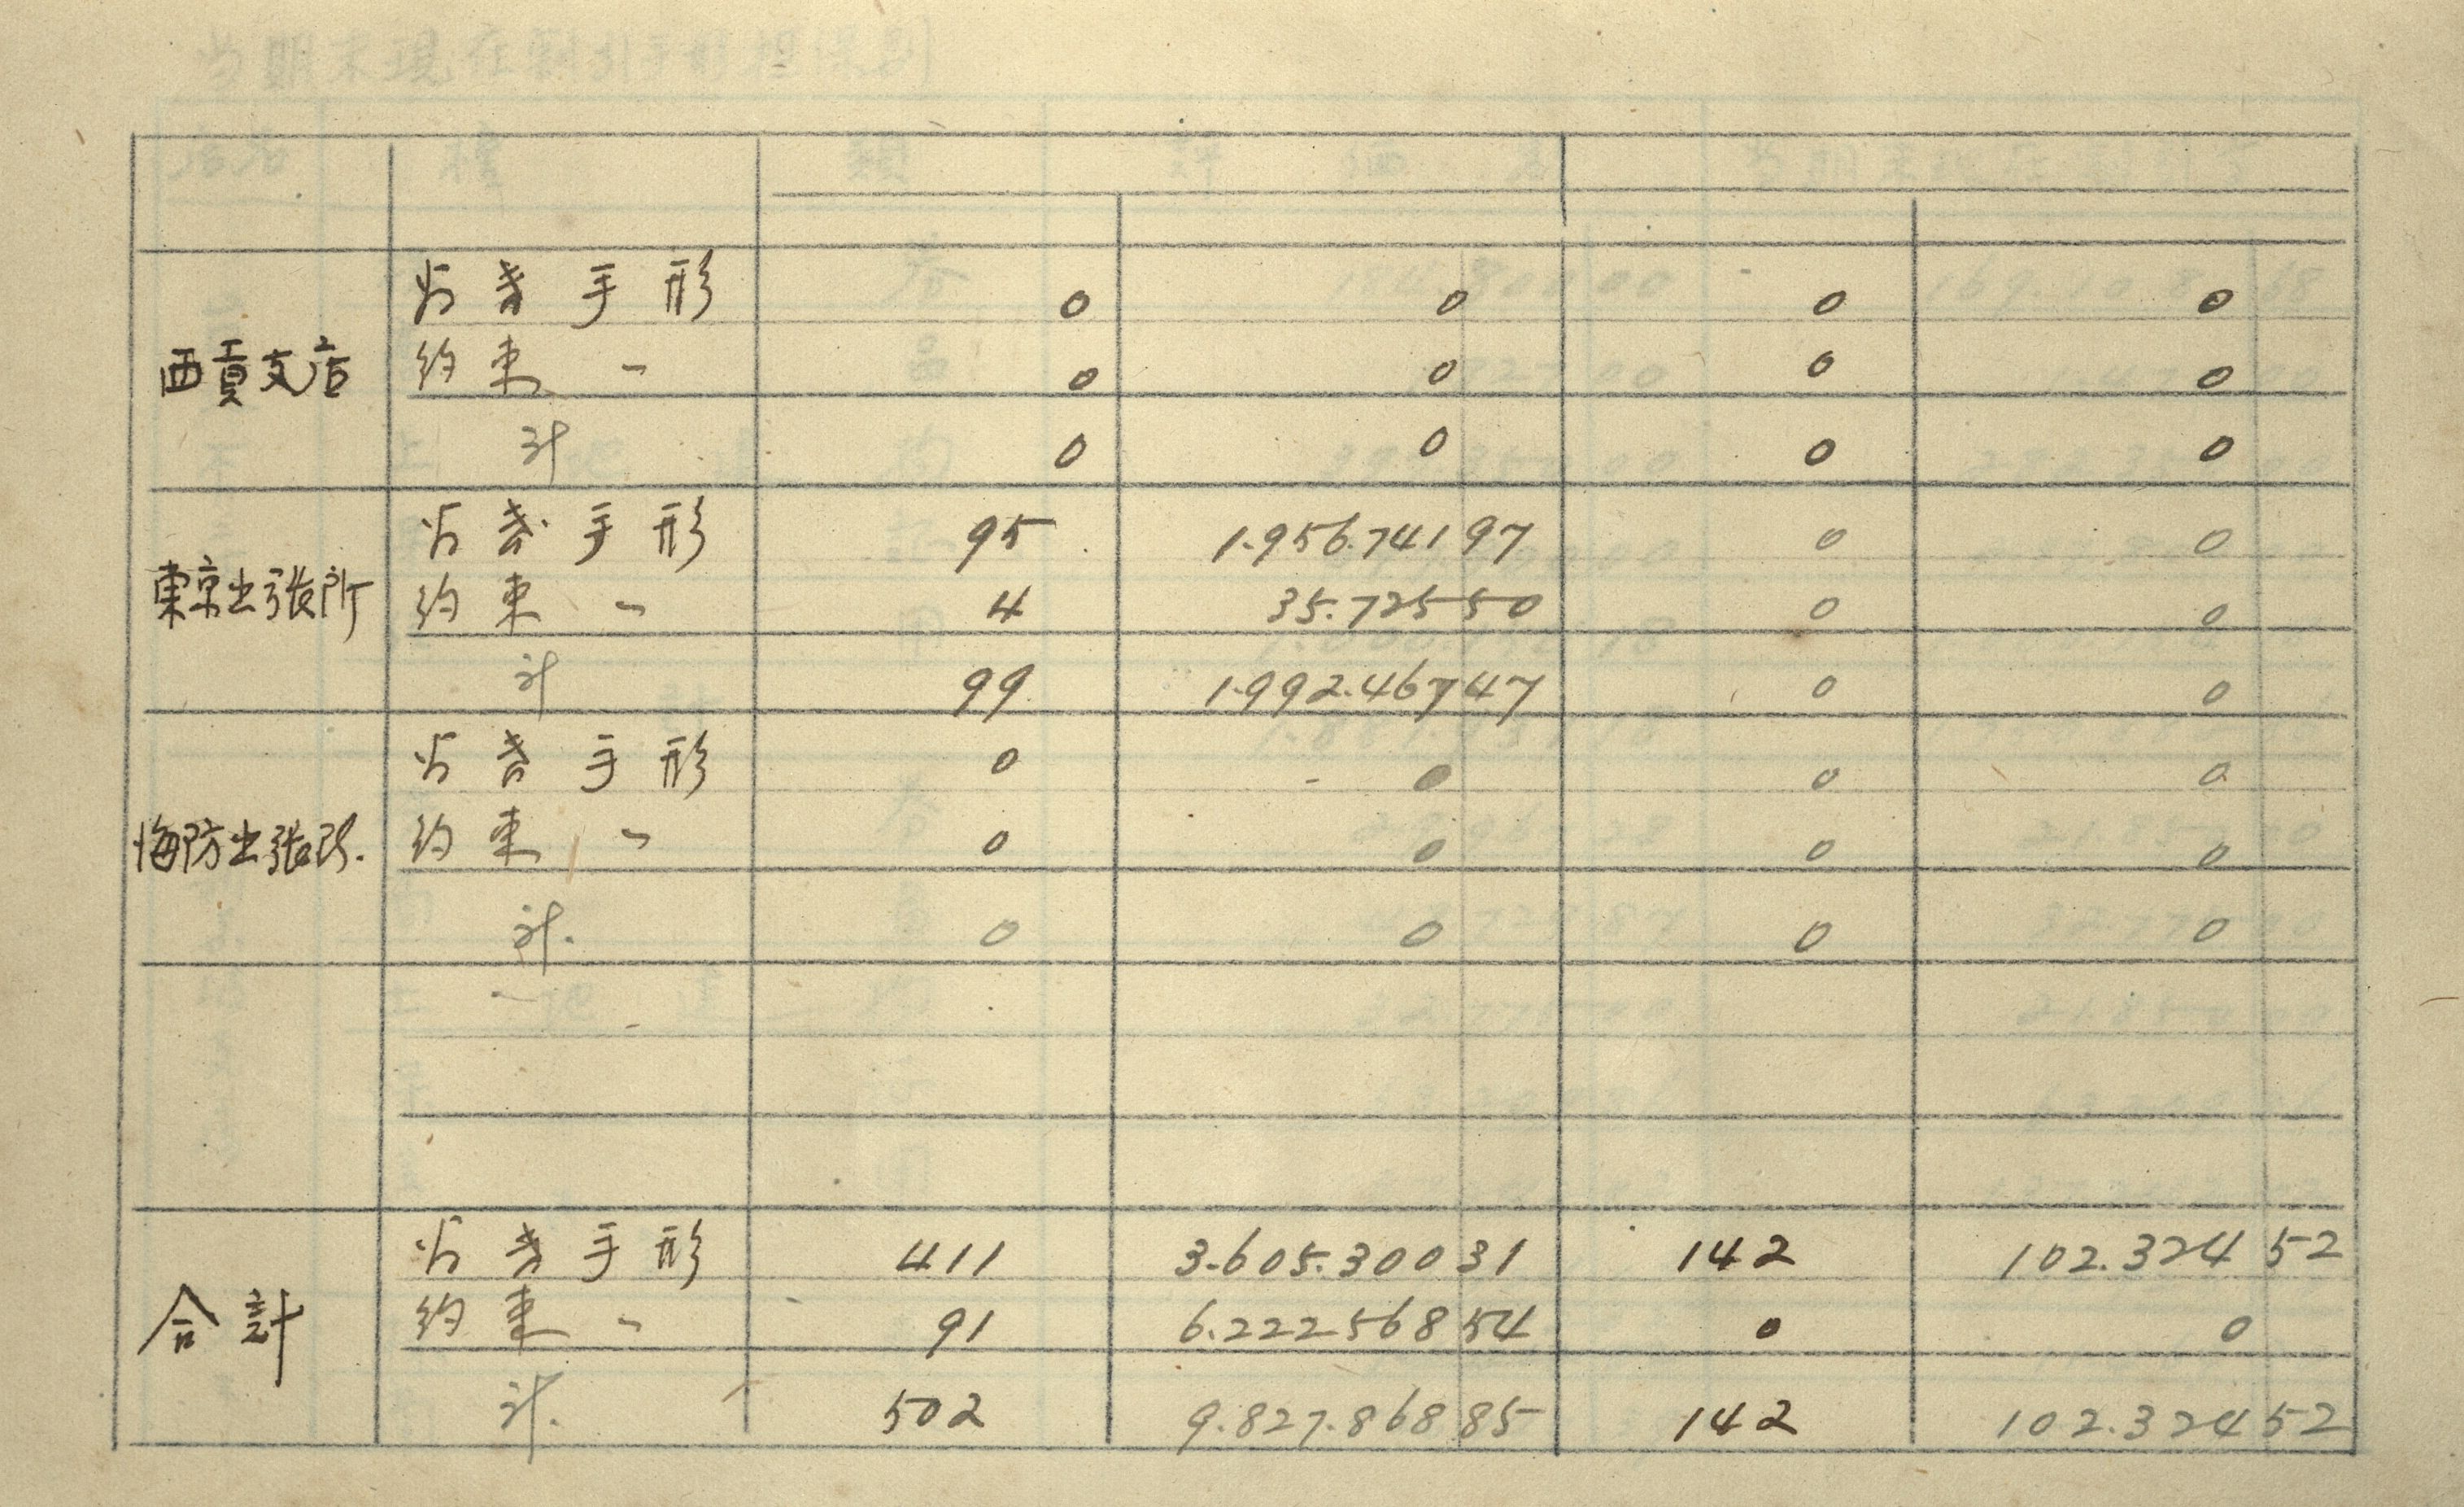 為替手形 0 0 0 0
西貢支店 約束〃 0 0 0 0
計 0 0 0 0
為替手形 95 1.956.741 97 0 0
東京出張所 約束〃 4 35.725 50 0 0
計 99 1.992.467 47 0 0
為替手形 0 0 0 0
海防出張所 約束〃 0 0 0 0
計 0 0 0 0
為替手形 411 3.605.300 31 142 102.324 52
合計 約束〃 91 6.222568 54 0 0
計 502 9.827.868 85 142 102.324 52